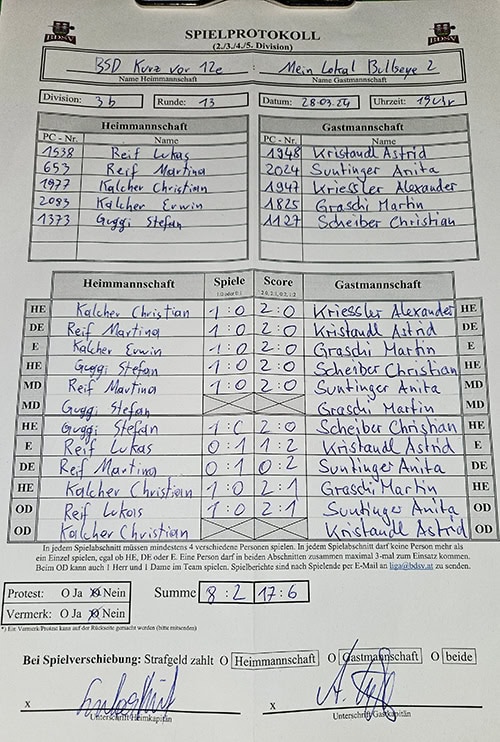 BDSV SPIELPROTOKOLL BDSV
(2./3./4./5. Division)
BSD Kurz vor 12e : Mein Lokal Bullseye 2
Name Heimmannschaft Name Gastmannschaft
Division: 3b Runde: 13 Datum: 28.03.24 Uhrzeit: 19 Uhr
Heimmannschaft Gastmannschaft
PC - Nr. Name PC - Nr. Name
1538 Reif Lukas 1948 Kristandl Astrid
653 Reif Martina 2024 Suntinger Anita
1977 Kalcher Christian 1947 Kriessler Alexander
2083 Kalcher Erwin 1825 Graschi Martin
1373 Guggi Stefan 1127 Scheiber Christian
Heimmannschaft Spiele Score Gastmannschaft
1:0 oder 0:1 2:0, 2:1, 0:2, 1:2
HE Kalcher Christian 1:0 2:0 Kriessler Alexander HE
DE Reif Martina 1:0 2:0 Kristandl Astrid DE
E Kalcher Erwin 1:0 2:0 Graschi Martin E
HE Guggi Stefan 1:0 2:0 Scheiber Christian HE
MD Reif Martina 1:0 2:0 Suntinger Anita MD
MD Guggi Stefan Graschi Martin MD
HE Guggi Stefan 1:0 2:0 Scheiber Christian HE
E Reif Lukas 0:1 1:2 Kristandl Astrid E
DE Reif Martina 0:1 0:2 Suntinger Anita DE
HE Kalcher Christian 1:0 2:1 Graschi Martin HE
OD Reif Lukas 1:0 2:1 Suntinger Anita OD
OD Kalcher Christian Kristandl Astrid OD
In jedem Spielabschnitt müssen mindestens 4 verschiedene Personen spielen. In jedem Spielabschnitt darf keine Person mehr als
ein Einzel spielen, egal ob HE, DE oder E. Eine Person darf in beiden Abschnitten zusammen maximal 3-mal zum Einsatz kommen.
Beim OD kann auch 1 Herr und 1 Dame im Team spielen. Spielberichte sind nach Spielende per E-Mail an liga@bdsv.at zu senden.
Protest: O Ja O Nein Summe 8:2 17:6
Vermerk: O Ja O Nein
*) Ein Vermerk/Protest kann auf der Rückseite gemacht werden (bitte ankreuzen)
Bei Spielverschiebung: Strafgeld zahlt O Heimmannschaft O Gastmannschaft O beide
x x
Unterschrift Heimkapitän Unterschrift Gastkapitän